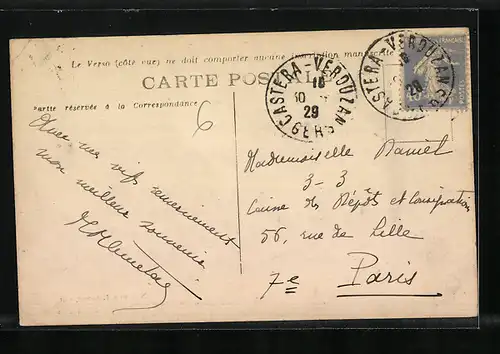 Le Verso (côté vue) ne doit comporter aucune inscription manuscrite
CARTE POSTALE
Partie réservée à la Correspondance
6
CASTERA-VERDUZAN
18
10
29
GERS
CASTERA-VERDUZAN
18
29
Avec mes vifs remerciements
mon meilleur souvenir
Mademoiselle Daniel
3-3
Caisse des Dépôts et Consignation
56, rue de Lille
Paris
7e